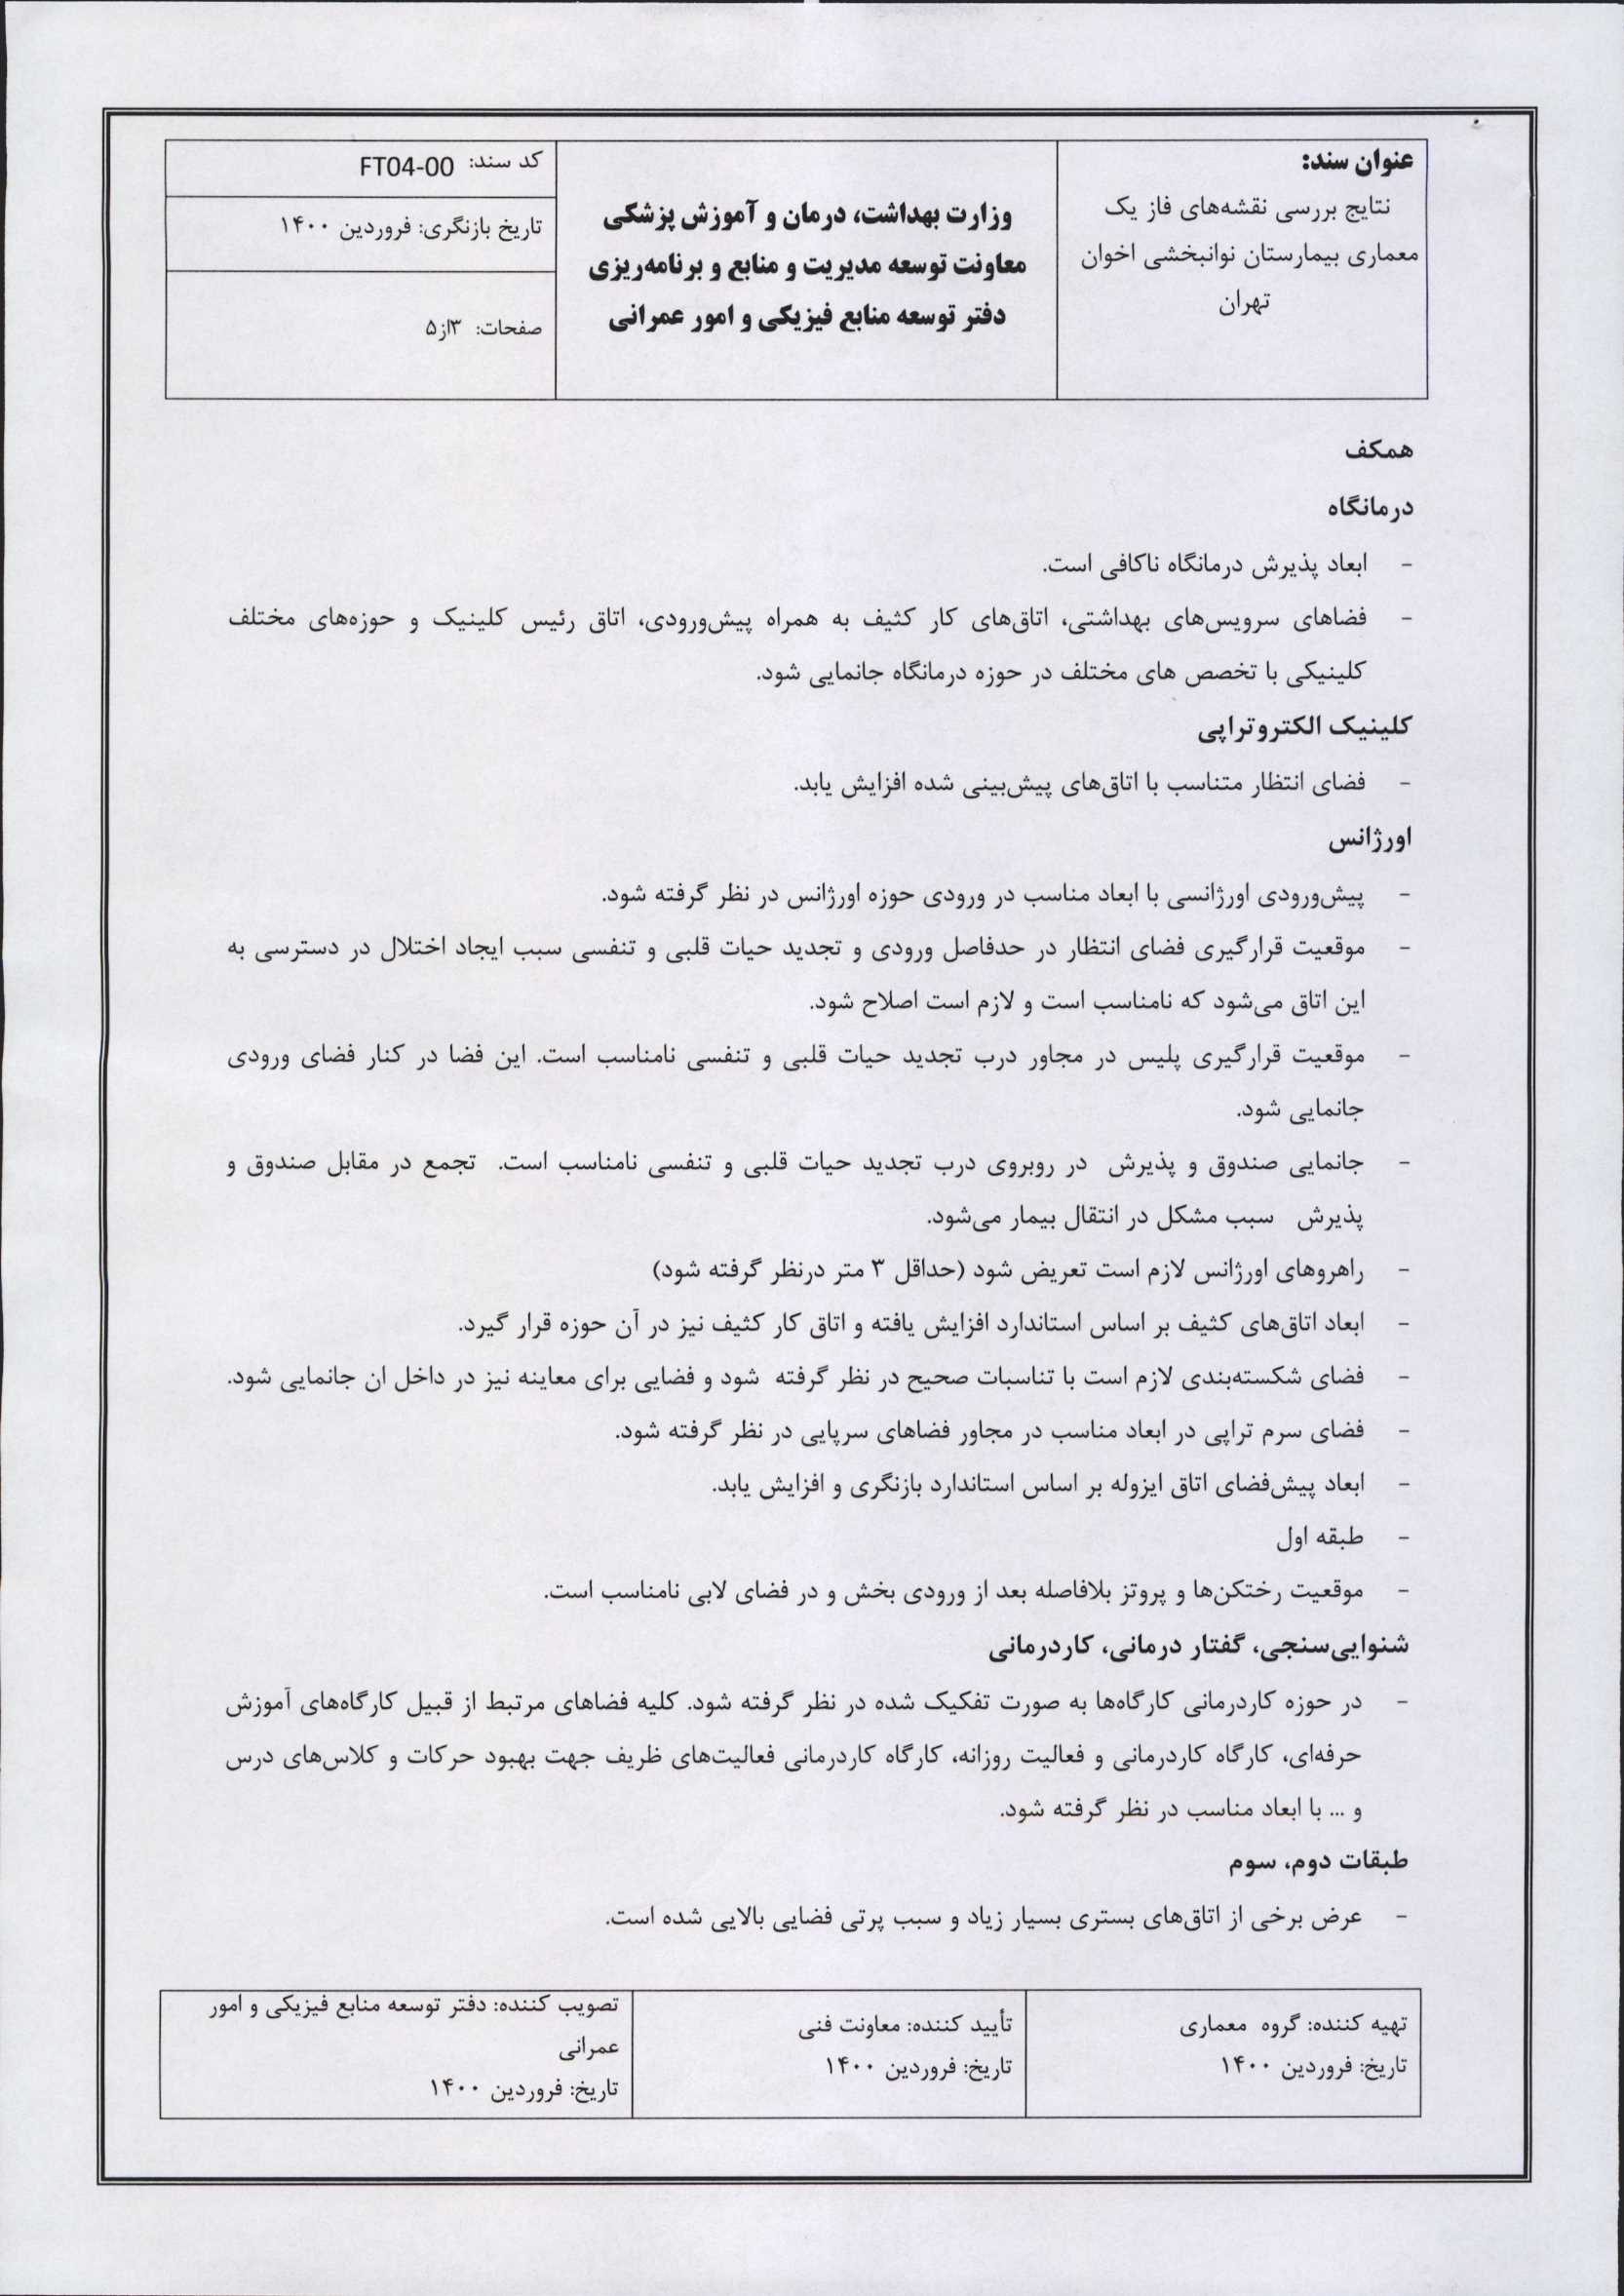 عنوان سند:
نتایج بررسی نقشه‌های فاز یک
معماری بیمارستان نوانبخشی اخوان
تهران
وزارت بهداشت، درمان و آموزش پزشکی
معاونت توسعه مدیریت و منابع و برنامه‌ریزی
دفتر توسعه منابع فیزیکی و امور عمرانی
کد سند: FT04-00
تاریخ بازنگری: فروردین ۱۴۰۰
صفحات: ۳از۵
همکف
درمانگاه
- ابعاد پذیرش درمانگاه ناکافی است.
- فضاهای سرویس‌های بهداشتی، اتاق‌های کار کثیف به همراه پیش‌ورودی، اتاق رئیس کلینیک و حوزه‌های مختلف
کلینیکی با تخصص های مختلف در حوزه درمانگاه جانمایی شود.
کلینیک الکتروتراپی
- فضای انتظار متناسب با اتاق‌های پیش‌بینی شده افزایش یابد.
اورژانس
- پیش‌ورودی اورژانسی با ابعاد مناسب در ورودی حوزه اورژانس در نظر گرفته شود.
- موقعیت قرارگیری فضای انتظار در حدفاصل ورودی و تجدید حیات قلبی و تنفسی سبب ایجاد اختلال در دسترسی به
این اتاق می‌شود که نامناسب است و لازم است اصلاح شود.
- موقعیت قرارگیری پلیس در مجاور درب تجدید حیات قلبی و تنفسی نامناسب است. این فضا در کنار فضای ورودی
جانمایی شود.
- جانمایی صندوق و پذیرش در روبروی درب تجدید حیات قلبی و تنفسی نامناسب است. تجمع در مقابل صندوق و
پذیرش سبب مشکل در انتقال بیمار می‌شود.
- راهروهای اورژانس لازم است تعریض شود (حداقل ۳ متر درنظر گرفته شود)
- ابعاد اتاق‌های کثیف بر اساس استاندارد افزایش یافته و اتاق کار کثیف نیز در آن حوزه قرار گیرد.
- فضای شکسته‌بندی لازم است با تناسبات صحیح در نظر گرفته شود و فضایی برای معاینه نیز در داخل ان جانمایی شود.
- فضای سرم تراپی در ابعاد مناسب در مجاور فضاهای سرپایی در نظر گرفته شود.
- ابعاد پیش‌فضای اتاق ایزوله بر اساس استاندارد بازنگری و افزایش یابد.
- طبقه اول
- موقعیت رختکن‌ها و پروتز بلافاصله بعد از ورودی بخش و در فضای لابی نامناسب است.
شنوایی‌سنجی، گفتار درمانی، کاردرمانی
- در حوزه کاردرمانی کارگاه‌ها به صورت تفکیک شده در نظر گرفته شود. کلیه فضاهای مرتبط از قبیل کارگاه‌های آموزش
حرفه‌ای، کارگاه کاردرمانی و فعالیت روزانه، کارگاه کاردرمانی فعالیت‌های ظریف جهت بهبود حرکات و کلاس‌های درس
و ... با ابعاد مناسب در نظر گرفته شود.
طبقات دوم، سوم
- عرض برخی از اتاق‌های بستری بسیار زیاد و سبب پرتی فضایی بالایی شده است.
تهیه کننده: گروه معماری
تاریخ: فروردین ۱۴۰۰
تأیید کننده: معاونت فنی
تاریخ: فروردین ۱۴۰۰
تصویب کننده: دفتر توسعه منابع فیزیکی و امور
عمرانی
تاریخ: فروردین ۱۴۰۰